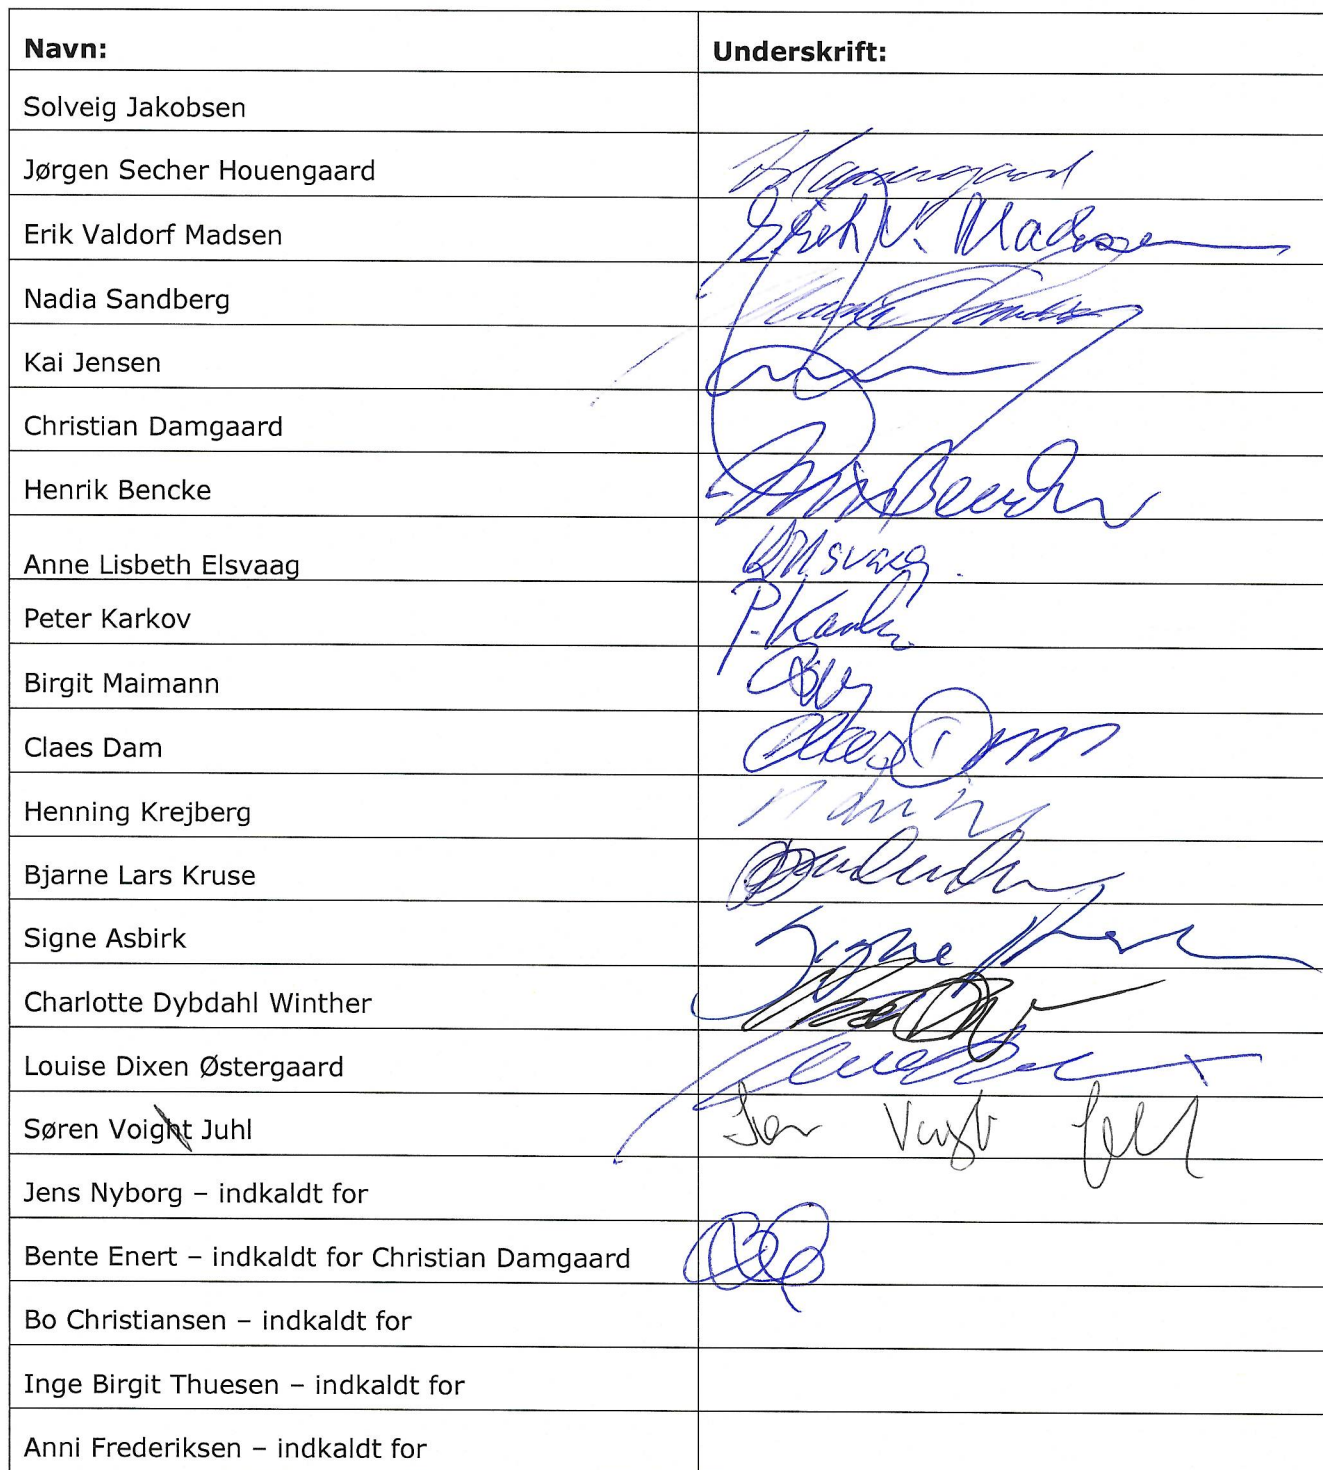 Navn: Underskrift:
Solveig Jakobsen
Jørgen Secher Houengaard
Erik Valdorf Madsen Erik V. Madsen
Nadia Sandberg
Kai Jensen
Christian Damgaard
Henrik Bencke
Anne Lisbeth Elsvaag
Peter Karkov P. Karkov
Birgit Maimann
Claes Dam Claes Dam
Henning Krejberg
Bjarne Lars Kruse
Signe Asbirk Signe
Charlotte Dybdahl Winther
Louise Dixen Østergaard
Søren Voight Juhl Søren Voigt Juhl
Jens Nyborg – indkaldt for
Bente Enert – indkaldt for Christian Damgaard
Bo Christiansen – indkaldt for
Inge Birgit Thuesen – indkaldt for
Anni Frederiksen – indkaldt for